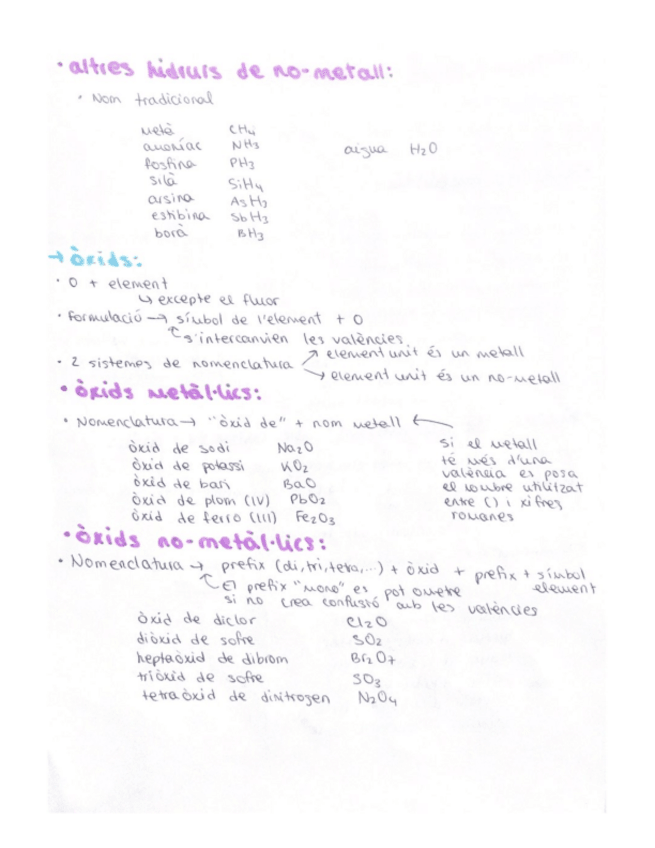 · altres hidrurs de no-metall:
· Nom tradicional
metà CH4
amoníac NH3
aigua H2O
fosfina PH3
silà SiH4
arsina AsH3
estibina SbH3
borà BH3
→ òxids:
· O + element
↳ excepte el fluor
· Formulació → símbol de l'element + O
s'intercanvien les valències
· 2 sistemes de nomenclatura ↗ element unit és un metall
↘ element unit és un no-metall
· òxids metàl·lics:
· Nomenclatura → "òxid de" + nom metall ←
si el metall
té més d'una
valència es posa
el nombre utilitzat
entre () i xifres
romanes
òxid de sodi Na2O
òxid de potassi KO2
òxid de bari BaO
òxid de plom (IV) PbO2
òxid de ferro (III) Fe2O3
· òxids no-metàl·lics:
· Nomenclatura → prefix (di, tri, tetra,...) + òxid + prefix + símbol
element
El prefix "mono" es pot ometre
si no crea confusió amb les valències
òxid de diclor Cl2O
diòxid de sofre SO2
heptaòxid de dibrom Br2O7
triòxid de sofre SO3
tetraòxid de dinitrogen N2O4